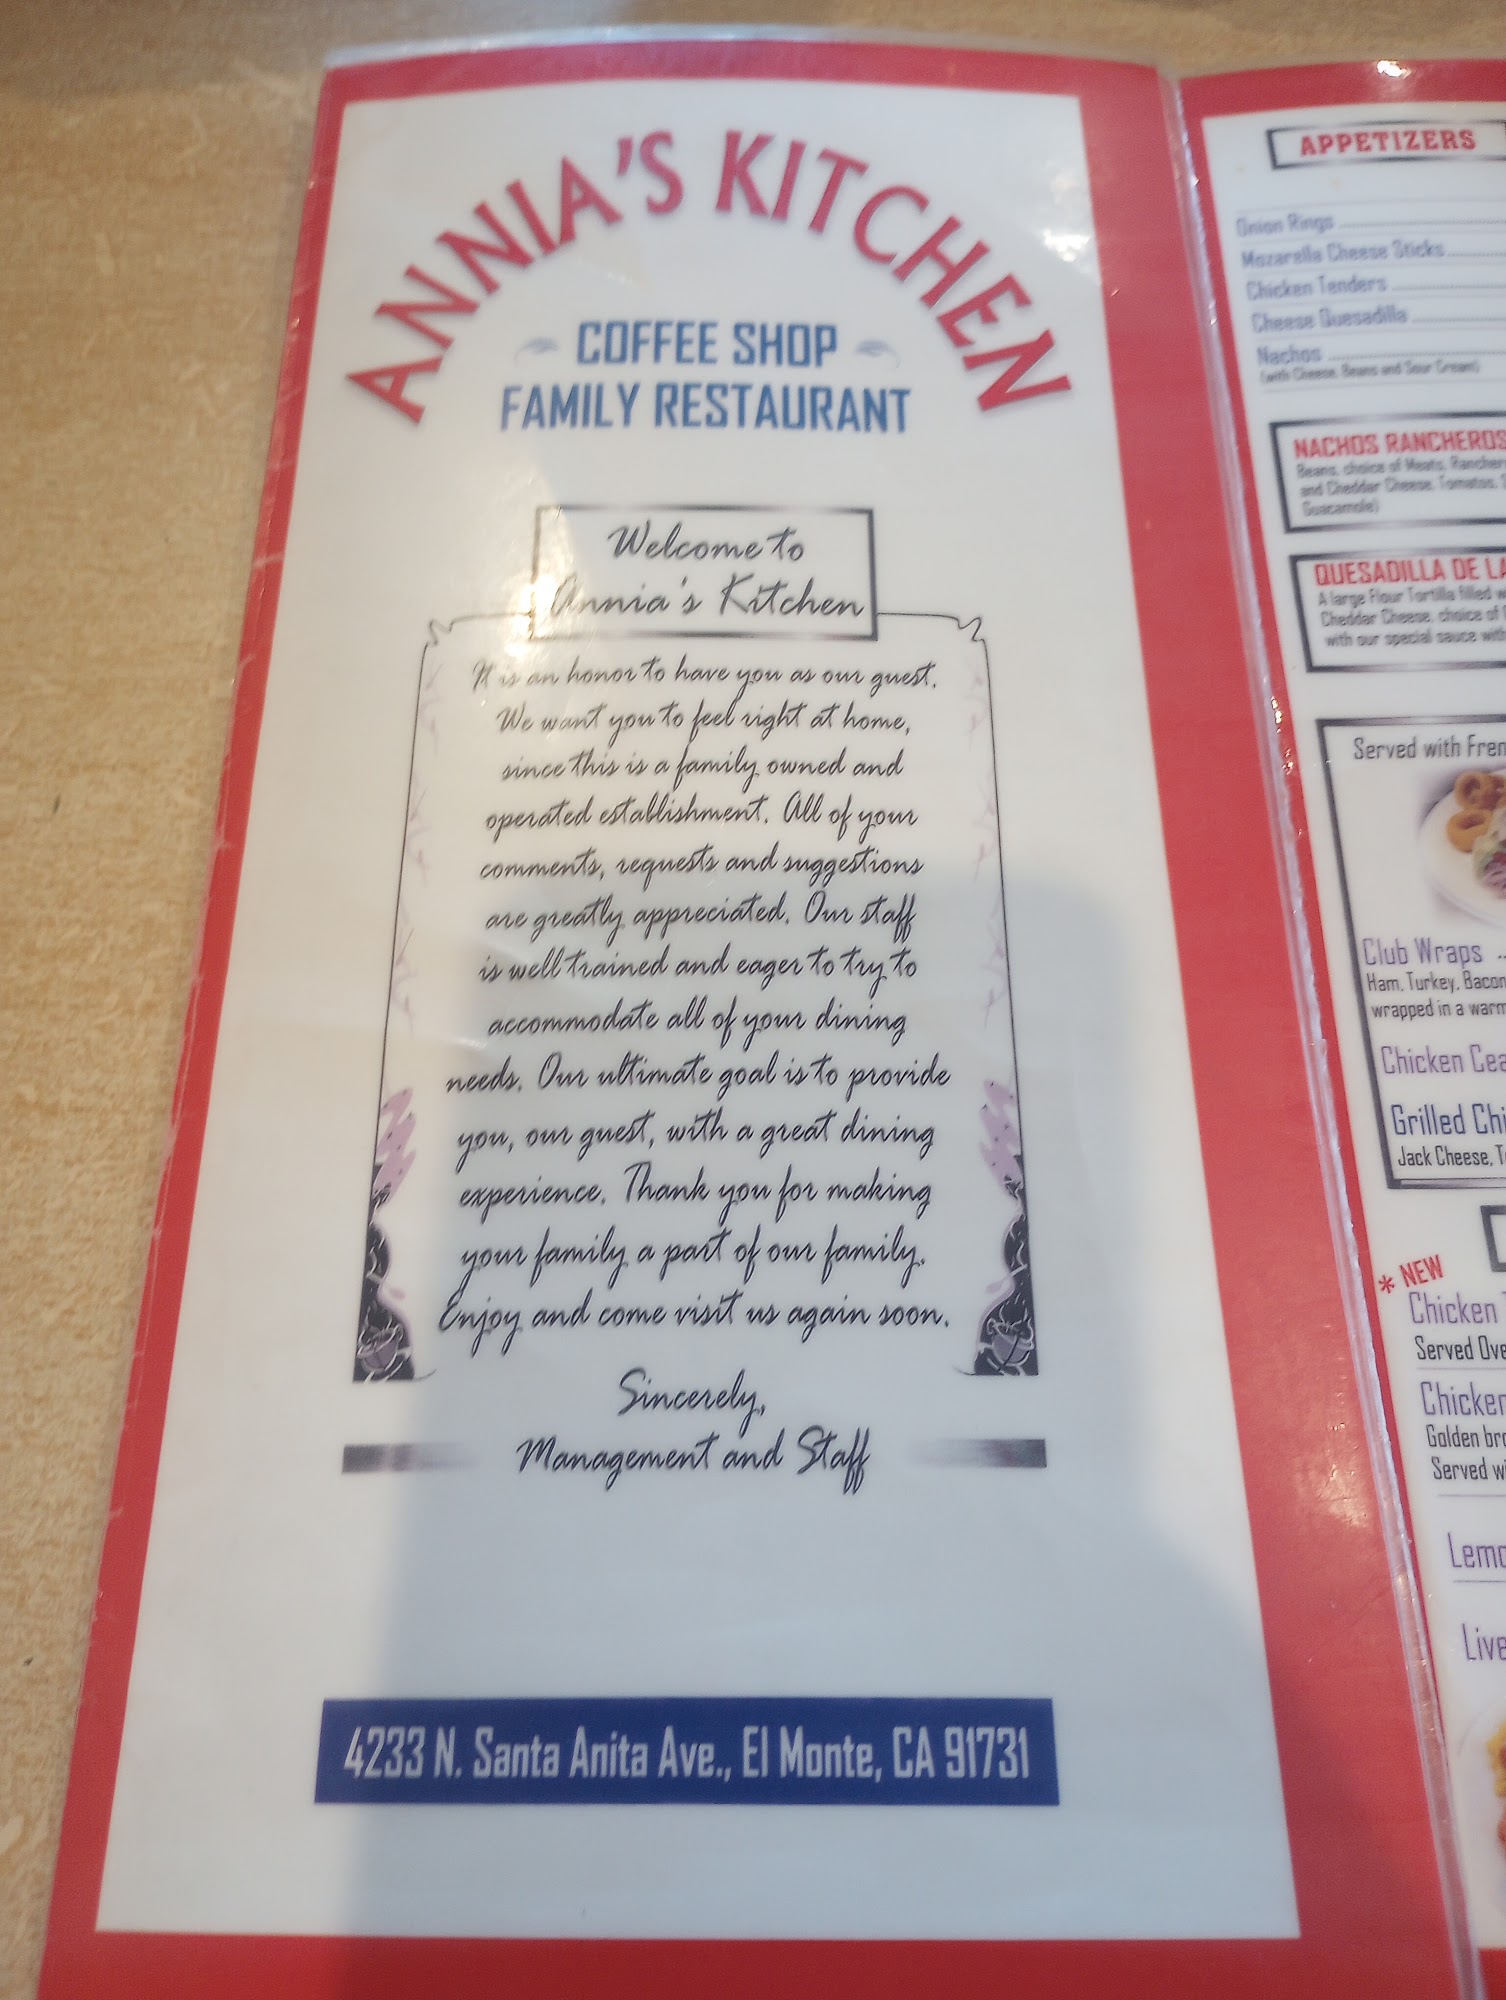 ANNIA'S KITCHEN
COFFEE SHOP
FAMILY RESTAURANT
Welcome to
Annia's Kitchen
It is an honor to have you as our guest.
We want you to feel right at home,
since this is a family owned and
operated establishment. All of your
comments, requests and suggestions
are greatly appreciated. Our staff
is well trained and eager to try to
accommodate all of your dining
needs. Our ultimate goal is to provide
you, our guest, with a great dining
experience. Thank you for making
your family a part of our family.
Enjoy and come visit us again soon.
Sincerely,
Management and Staff
4233 N. Santa Anita Ave., El Monte, CA 91731
APPETIZERS
Onion Rings
Mozarella Cheese Sticks
Chicken Tenders
Cheese Quesadilla
Nachos
(with Cheese, Beans and Sour Cream)
NACHOS RANCHEROS
Beans, choice of Meats, Rancher
and Cheddar Cheese, Tomatos,
Guacamole)
QUESADILLA DE LA
A large Flour Tortilla filled w
Cheddar Cheese, choice of
with our special sauce with
Served with Fren
Club Wraps
Ham, Turkey, Bacon
wrapped in a warm
Chicken Cea
Grilled Chi
Jack Cheese, T
* NEW
Chicken
Served Ove
Chicken
Golden bro
Served wi
Lemo
Live